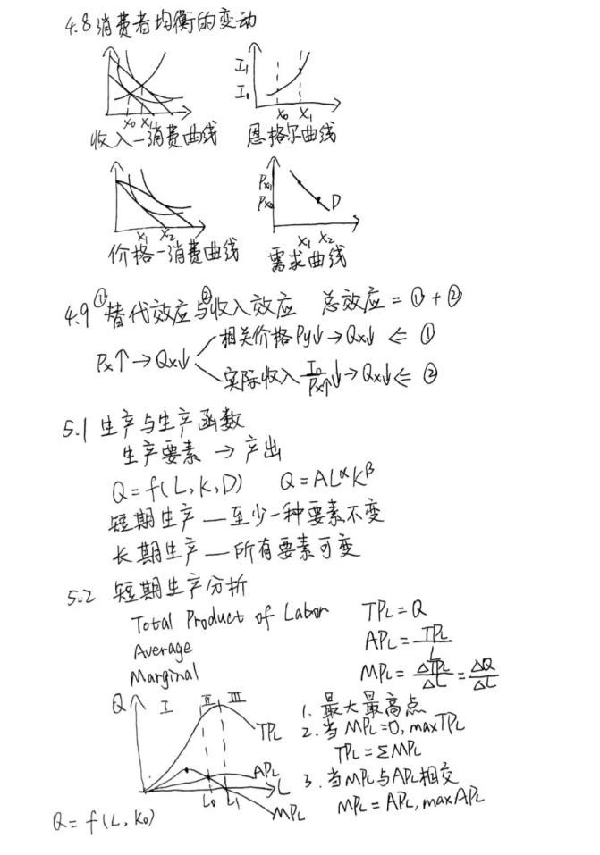 4.8 消费者均衡的变动
I₁
I₀
X₀ X₁
X₀ X₁
收入—消费曲线 恩格尔曲线
Px₁
Px₂
D
X₁ X₂
X₁ X₂
价格—消费曲线 需求曲线
4.9 ①替代效应与②收入效应 总效应 = ① + ②
Px↑→Qx↓
相关价格Py↓→Qx↓ ⇐ ①
实际收入 I₀/Px↑ ↓→Qx↓ ⇐ ②
5.1 生产与生产函数
生产要素 → 产出
Q = f(L, K, D) Q = AL^αK^β
短期生产 — 至少一种要素不变
长期生产 — 所有要素可变
5.2 短期生产分析
Total Product of Labor TPL = Q
Average APL = TPL/L
Marginal MPL = ΔTPL/ΔL = ΔQ/ΔL
Q I II III
TPL
APL
L
L₀ L₁
MPL
1. 最大最高点
2. 当MPL=0, maxTPL
TPL = ΣMPL
3. 当MPL与APL相交
MPL = APL, maxAPL
Q = f(L, K₀)